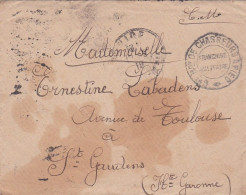 Mademoiselle
Ernestine Tabadens
Avenue de Toulouse
à
St Gaudens
(Hte Garonne)
DE CHASSEURS